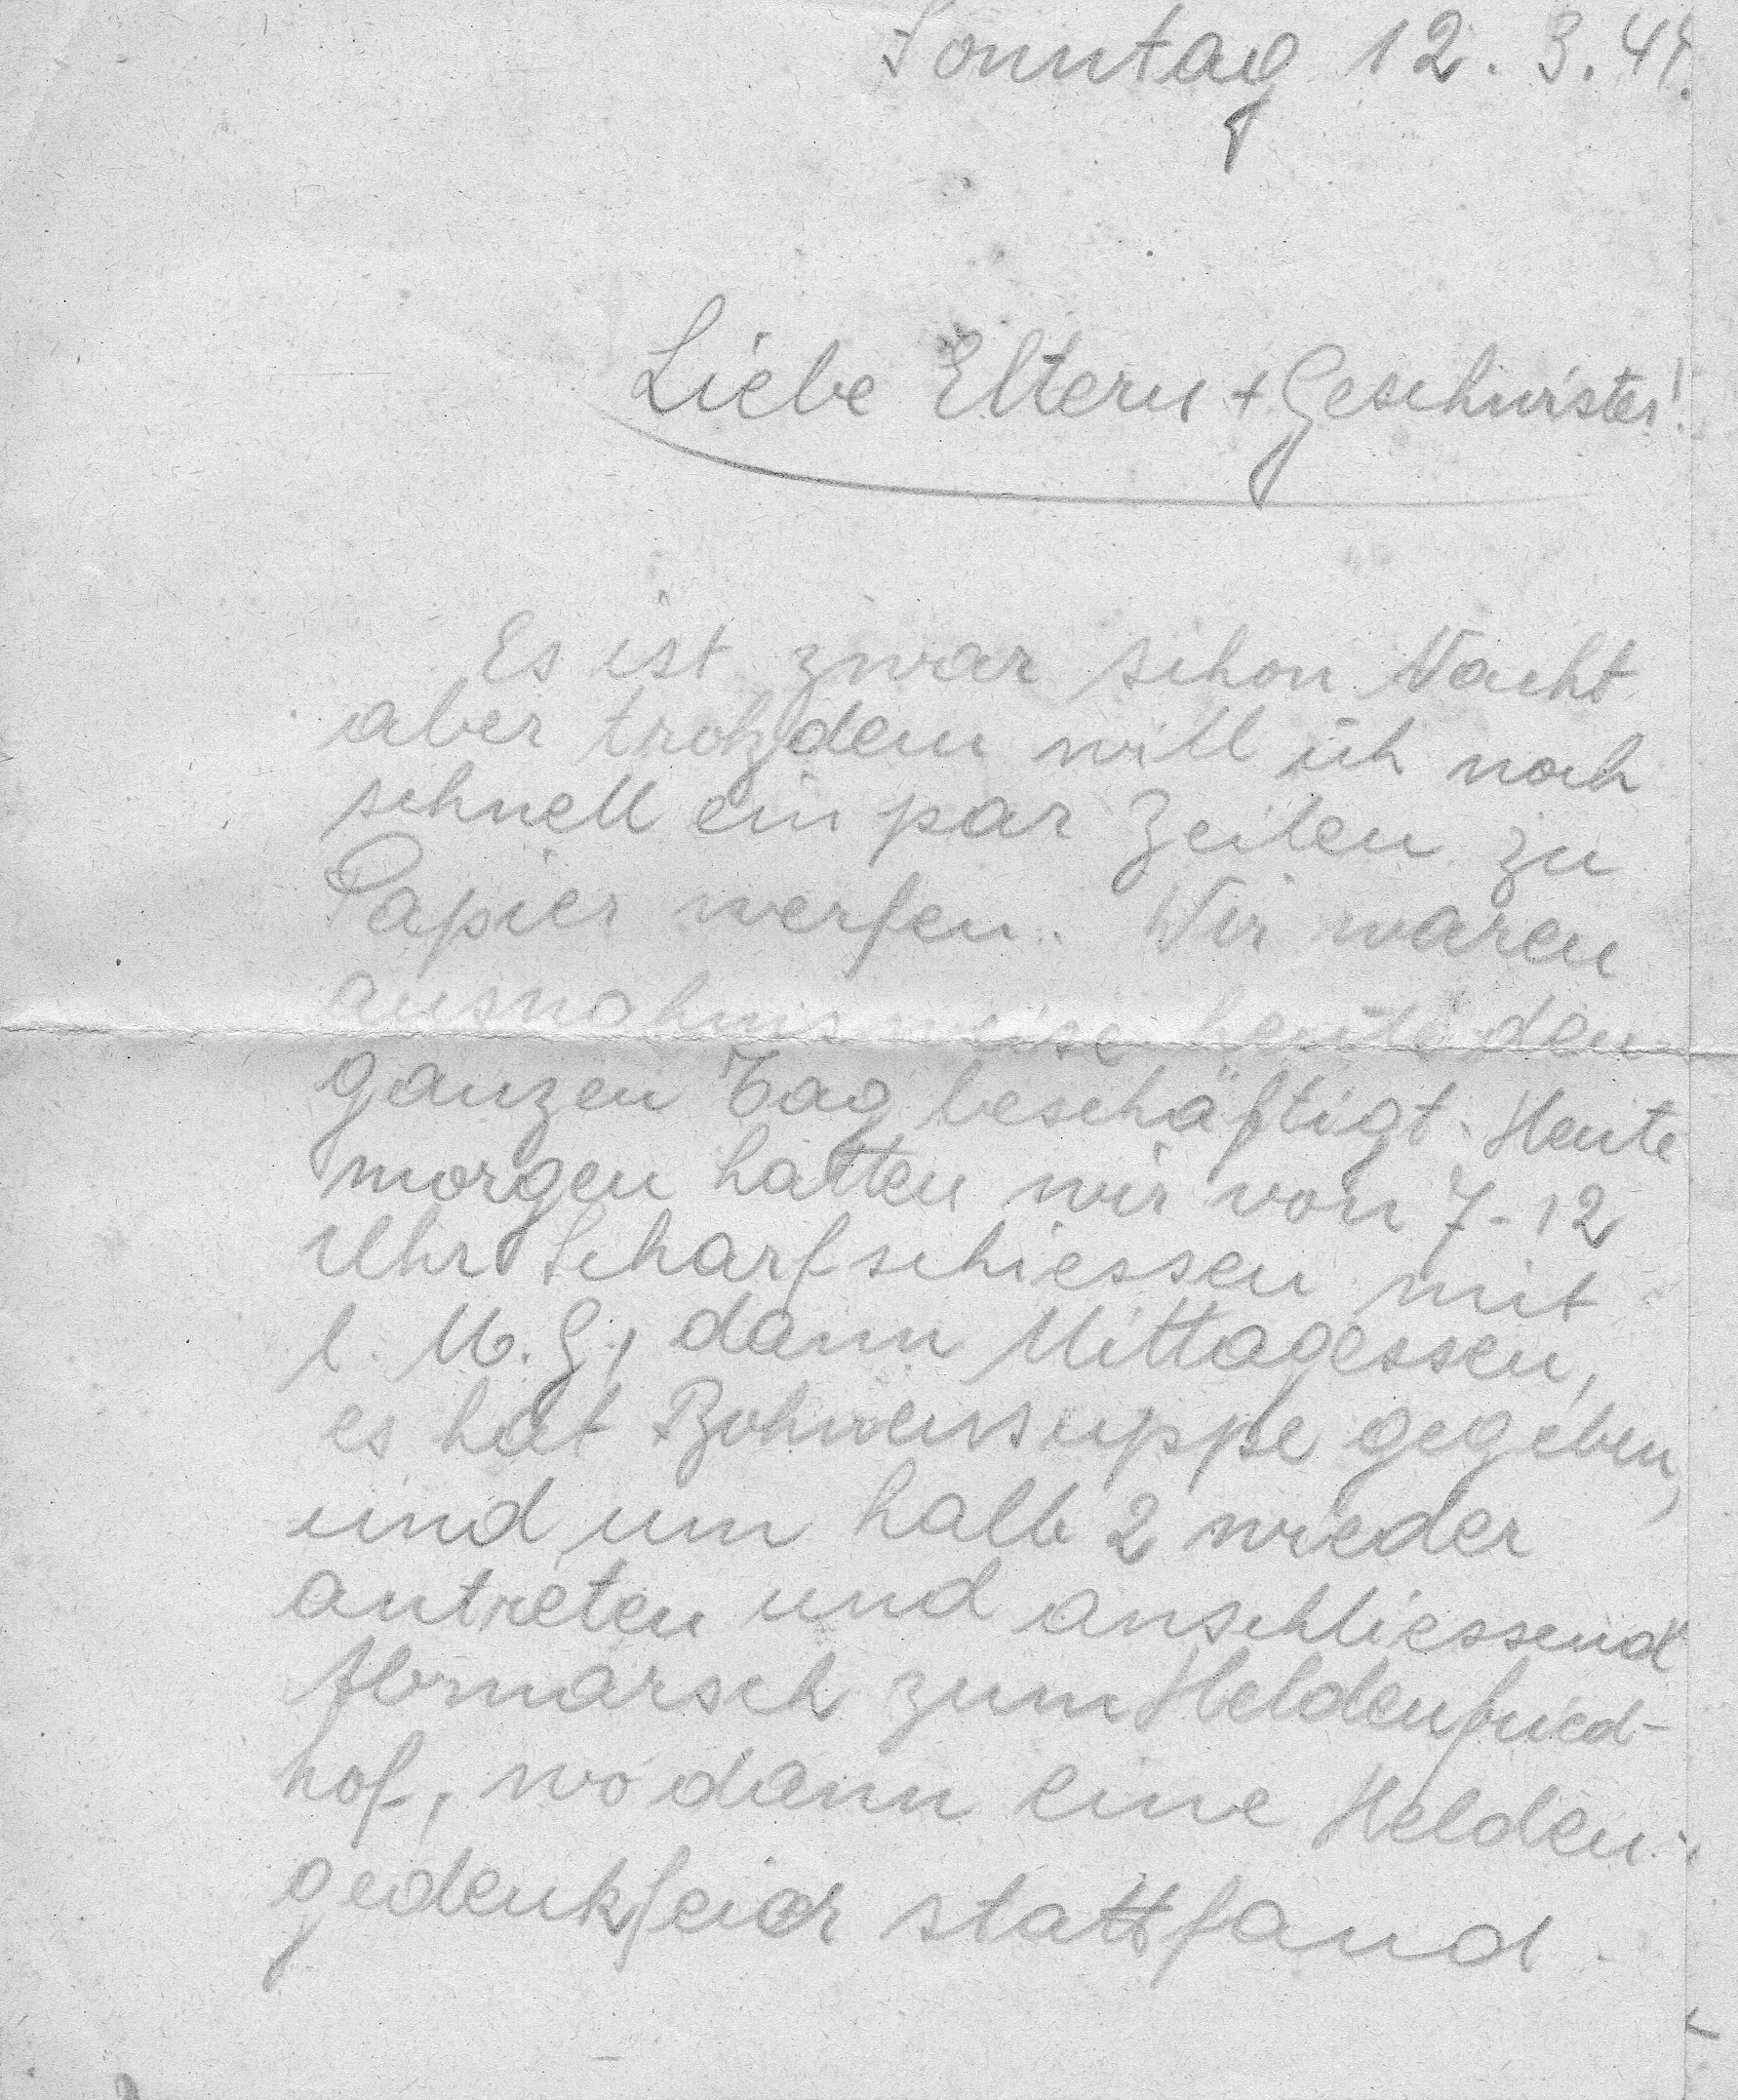 Sonntag 12.3.44.
Liebe Eltern + Geschwister!
Es ist zwar schon Nacht
aber trotzdem will ich noch
schnell ein par Zeilen zu
Papier werfen. Wir waren
ausnahmsweise heute den
ganzen Tag beschäftigt. Heute
morgen hatten wir von 7-12
Uhr Scharfschiessen mit
l. M.G., dann Mittagessen,
es hat Bohnensuppe gegeben,
und um halb 2 wieder
antreten und anschliessend
Abmarsch zum Heldenfried-
hof, wo dann eine Helden-
gedenkfeier stattfand.